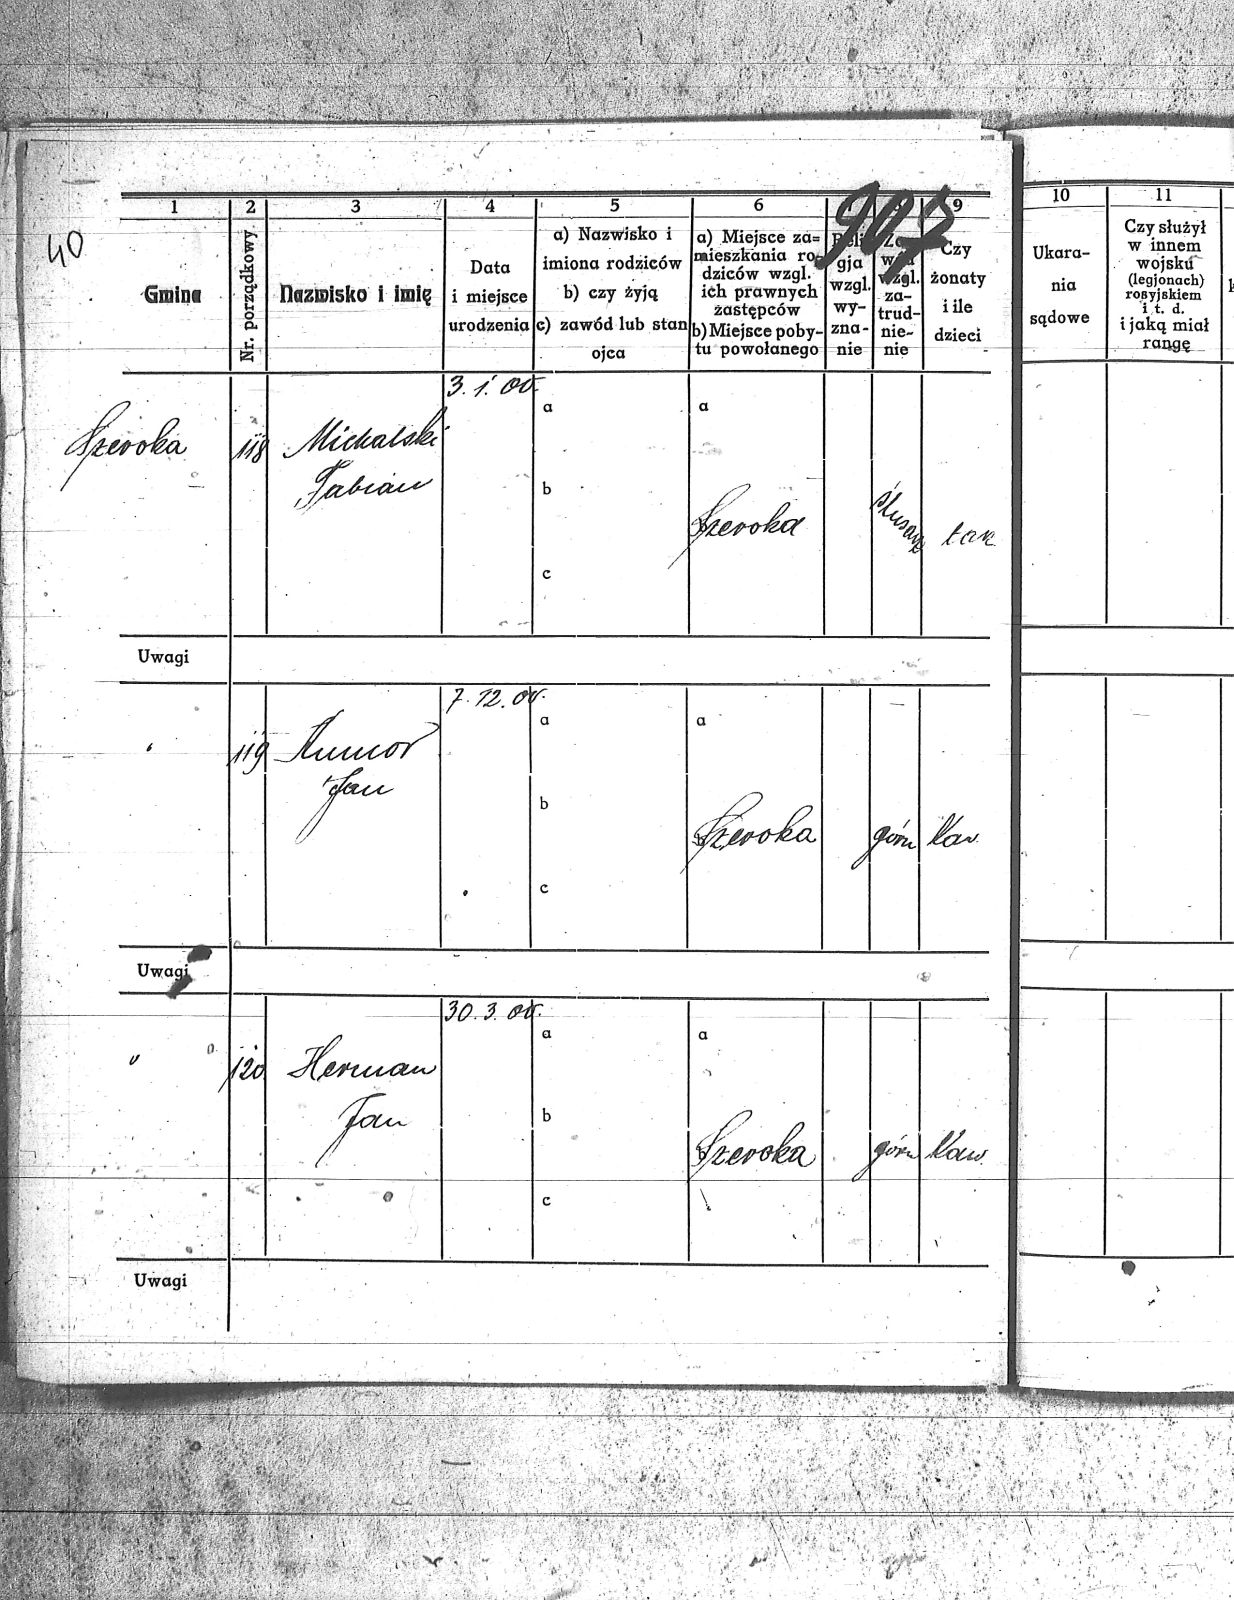 40
907
1 2 3 4 5 6 9 10 11
Gmina
Nr. porządkowy
Nazwisko i imię
Data
i miejsce
urodzenia
a) Nazwisko i
imiona rodziców
b) czy żyją
c) zawód lub stan
ojca
a) Miejsce za=
mieszkania ro-
dziców wzgl.
ich prawnych
zastępców
b) Miejsce poby-
tu powołanego
Reli
gja
wzgl.
wy-
zna-
nie
wzgl.
za-
trud-
nie-
nie
Czy
żonaty
i ile
dzieci
Ukara-
nia
sądowe
Czy służył
w innem
wojsku
(legjonach)
rosyjskiem
i t. d.
i jaką miał
rangę
3. 1. 00.
Szeroka 118 Michalski
Fabian
a a
b
Szeroka ślusarz tak
c
Uwagi
7. 12. 00.
" 119 Kumor
Jan
a a
b
Szeroka górn Kaw.
c
Uwagi
30. 3. 00.
" 120 Herman
Jan
a a
b
Szeroka górn Kaw.
c
Uwagi